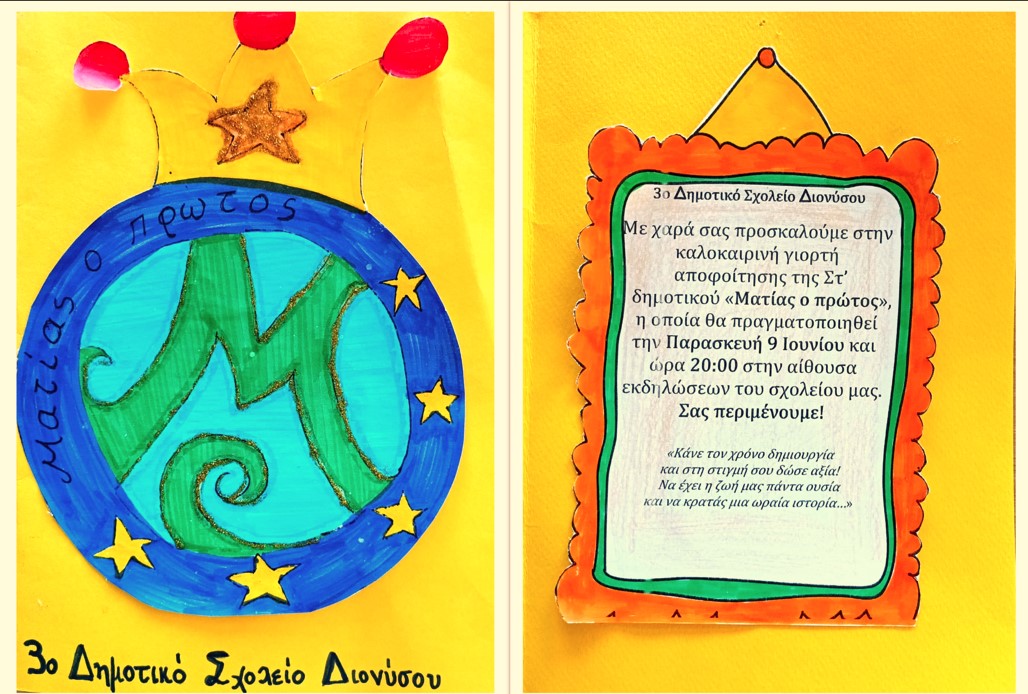 Ματίας ο πρωτος
3ο Δημοτικό Σχολείο Διονύσου
3ο Δημοτικό Σχολείο Διονύσου
Με χαρά σας προσκαλούμε στην
καλοκαιρινή γιορτή
αποφοίτησης της Στ’
δημοτικού «Ματίας ο πρώτος»,
η οποία θα πραγματοποιηθεί
την Παρασκευή 9 Ιουνίου και
ώρα 20:00 στην αίθουσα
εκδηλώσεων του σχολείου μας.
Σας περιμένουμε!
«Κάνε τον χρόνο δημιουργία
και στη στιγμή σου δώσε αξία!
Να έχει η ζωή μας πάντα ουσία
και να κρατάς μια ωραία ιστορία...»